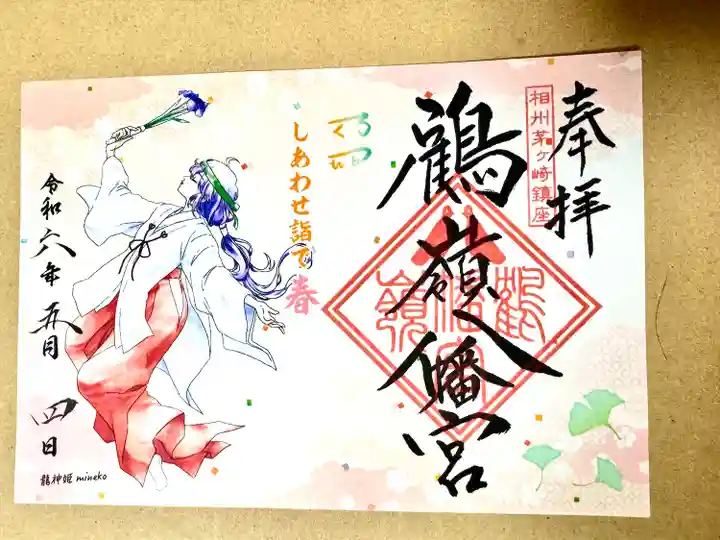 奉拝
相州茅ヶ崎鎮座
鶴嶺八幡宮
しあわせ詣で春
令和六年五月四日
龍神姫 mineko